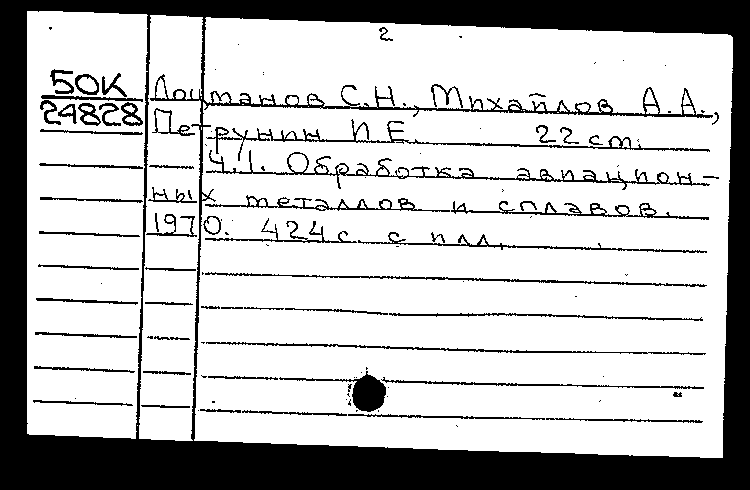 2
50К
24828
Лоцманов С.Н., Михайлов А.А.,
Петрунин И.Е. 22 cm.
Ч.1. Обработка авиацион-
ных металлов и сплавов.
1970. 424 с. с илл.